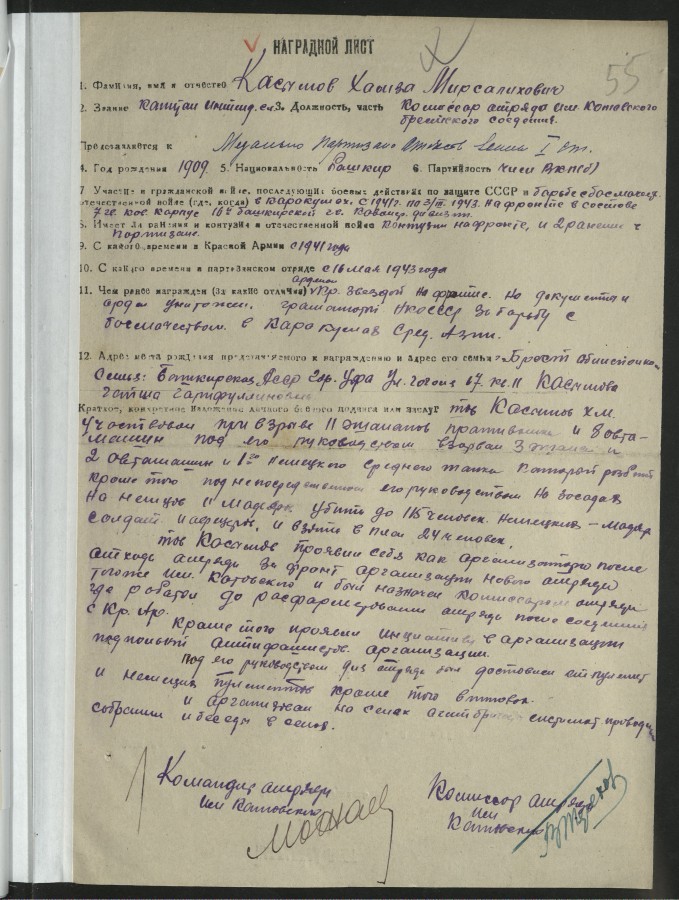 НАГРАДНОЙ ЛИСТ
55
1. Фамилия, имя и отчество Касымов Хамза Мирсалихович
2. Звание Капитан интенд. сл. 3. Должность, часть Комиссар отряда им. Котовского
брестского соедения.
Представляется к Медалью партизану отечеств войны I ст.
4. Год рождения 1909. 5. Национальность Башкир 6. Партийность член ВКП(б)
7 Участие в гражданской войне, последующих боевых действиях по защите СССР и борьбе с басмачест.
отечественной войне (где, когда) в Каракумах. С 1941 г. по 3/III. 1943. На фронте в составе
7 гв. кав. корпус 16й башкирской гв. Кавалер. дивизии.
8. Имеет ли ранения и контузии в отечественной войне Контузии на фронте, и 2 ранения в
партизане.
9. С какого времени в Красной Армии с 1941 года
10. С какого времени в партизанском отряде с 16 мая 1943 года
11. Чем ранее награжден (за какие отличия) Орденом Кр. Звездой на фронте. Но документы и
орден уничтожен. грамотой НКСССР за борьбу с
басмачеством в Каракумах Сред. Азии.
12. Адрес места рождения представляемого к награждению и адрес его семьи г. Брест облисполко-
Семья: Башкирская АССР гор. Уфа ул. Гоголя 67 кв. 11 Касымова
Краткое, конкретное изложение личного боевого подвига или заслуг тов Касымов Х.М.
Участвовал при взрыве 11 эшалонов противника и 8 авто-
машин под его руководством взорвал 3 эшалона и
2 автомашин и 1го немецкого среднего танка который разбит
кроме того под непосредственном его руководством на засадах
на немцов и мадьяр убиты до 115 человек. немецких – мадяр
солдат и афицеров, и взято в плен 24 человек.
тов Касымов проявил себя как организатора после
отхода отряда за фронт организации нового отряда
тогоже им. Котовского и был назначен комиссаром отряда
где работал до расформирования отряда после соедения
с Кр. Ар.
Кроме того проявил инциатива в организации
подпольной антифашистов. организации.
Под его руководством для отряда был доставлен ст пулемет
и немецкий пулеметов кроме того винтовок.
и организовал на селах агитбригад систимат. проводил
собрании и беседы в селах.
Командир отряда
им Котовского
Комиссар отряда
им
Котовского